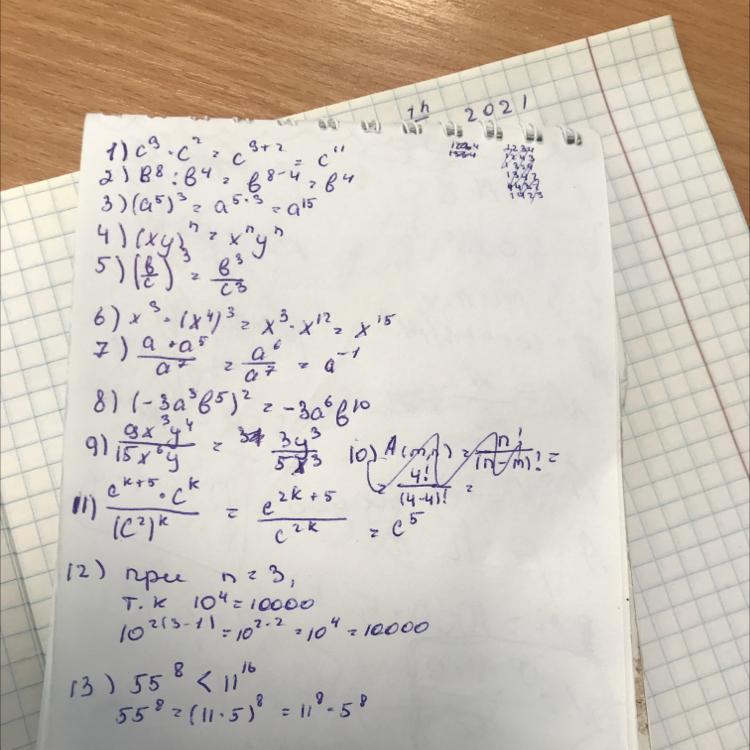 2021
1) c⁹ · c² = c⁹⁺² = c¹¹
2) в⁸ : в⁴ = в⁸⁻⁴ = в⁴
3) (a⁵)³ = a⁵·³ = a¹⁵
4) (xy)ⁿ = xⁿyⁿ
5) (в/c)³ = в³/c³
6) x³ · (x⁴)³ = x³ · x¹² = x¹⁵
7) a · a⁵ / a⁷ = a⁶/a⁷ = a⁻¹
8) (-3a³в⁵)² = -3a⁶в¹⁰
9) 9x³y⁴ / 15x⁶y = 3y³ / 5x³
10) A(m,n) = n! / (n-m)! =
= 4! / (4-4)! =
11) c^(k+5) · c^k / (c²)^k = c^(2k+5) / c^(2k) = c⁵
12) при n = 3,
т.к 10⁴ = 10000
10²⁽³⁻¹⁾ = 10²·² = 10⁴ = 10000
13) 55⁸ < 11¹⁶
55⁸ = (11·5)⁸ = 11⁸ · 5⁸